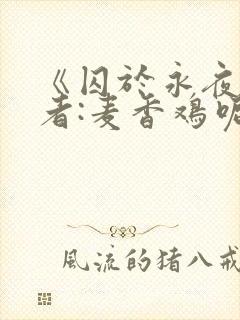 《囚於永夜
者:麦香鸡呢
風流的猪八戒